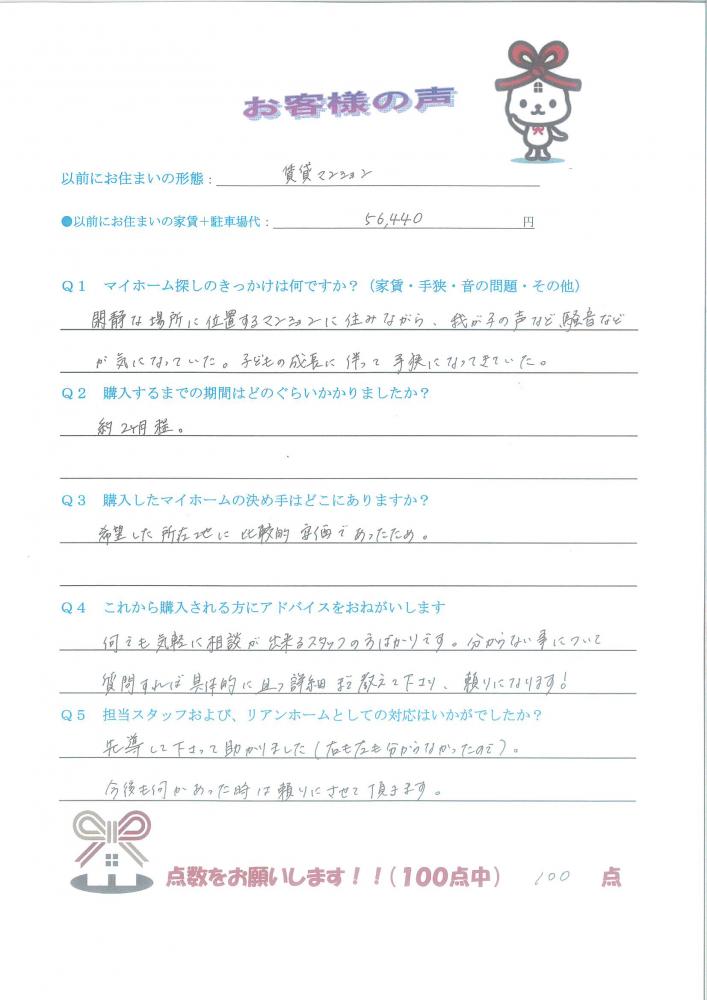 お客様の声
以前にお住まいの形態：賃貸マンション
●以前にお住まいの家賃＋駐車場代：56,440円
Q1 マイホーム探しのきっかけは何ですか？（家賃・手狭・音の問題・その他）
閑静な場所に位置するマンションに住みながら、我が子の声など騒音など
が気になっていた。子どもの成長に伴って手狭になってきていた。
Q2 購入するまでの期間はどのぐらいかかりましたか？
約2ヶ月程。
Q3 購入したマイホームの決め手はどこにありますか？
希望した所在地に比較的安価であったため。
Q4 これから購入される方にアドバイスをおねがいします
何でも気軽に相談が出来るスタッフの方ばかりです。分からない事について
質問すれば具体的に且つ詳細まで教えて下さり、頼りになります！
Q5 担当スタッフおよび、リアンホームとしての対応はいかがでしたか？
先導して下さって助かりました（右も左も分からなかったので）。
今後も何かあった時は頼りにさせて頂きます。
点数をお願いします！！（100点中） 100 点